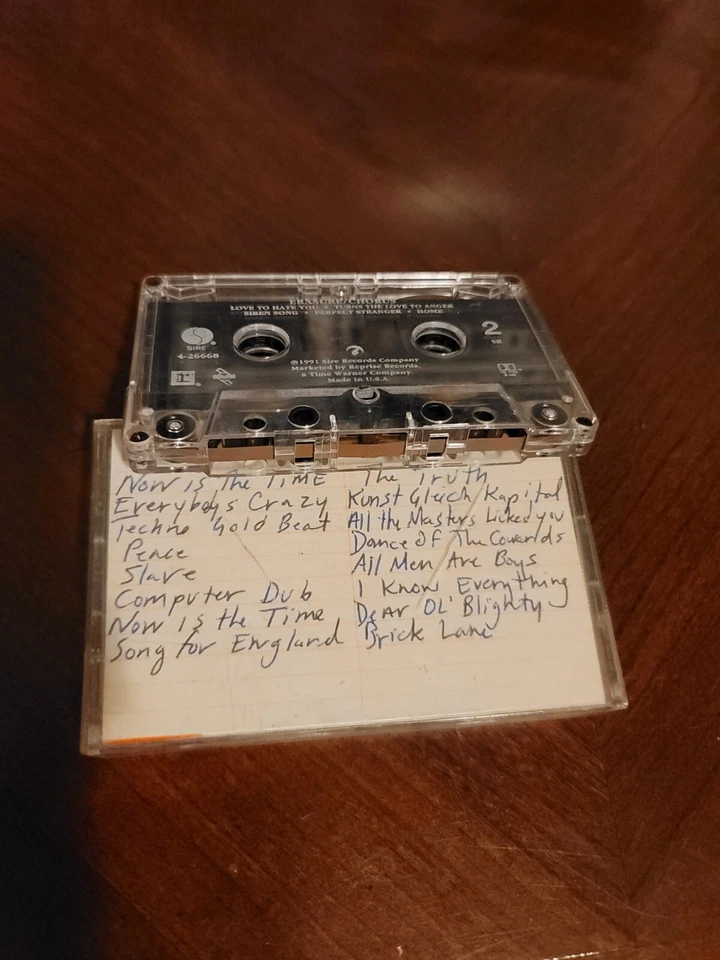 ERASURE/CHORUS
LOVE TO HATE YOU • TURNS THE LOVE TO ANGER
SIREN SONG • PERFECT STRANGER • HOME
SIRE
4-26668
2
SR
℗©1991 Sire Records Company
Marketed by Reprise Records,
a Time Warner Company.
Made in U.S.A.
r
Now is The TIME
Everybodys Crazy
Techno Gold Beat
Peace
Slave
Computer Dub
Now is the Time
Song for England
The Truth
Kunst Gluch Kapital
All the Masters Licked you
Dance Of The Cowards
All Men Are Boys
I Know Everything
Dear OL' Blighty
Brick Lane